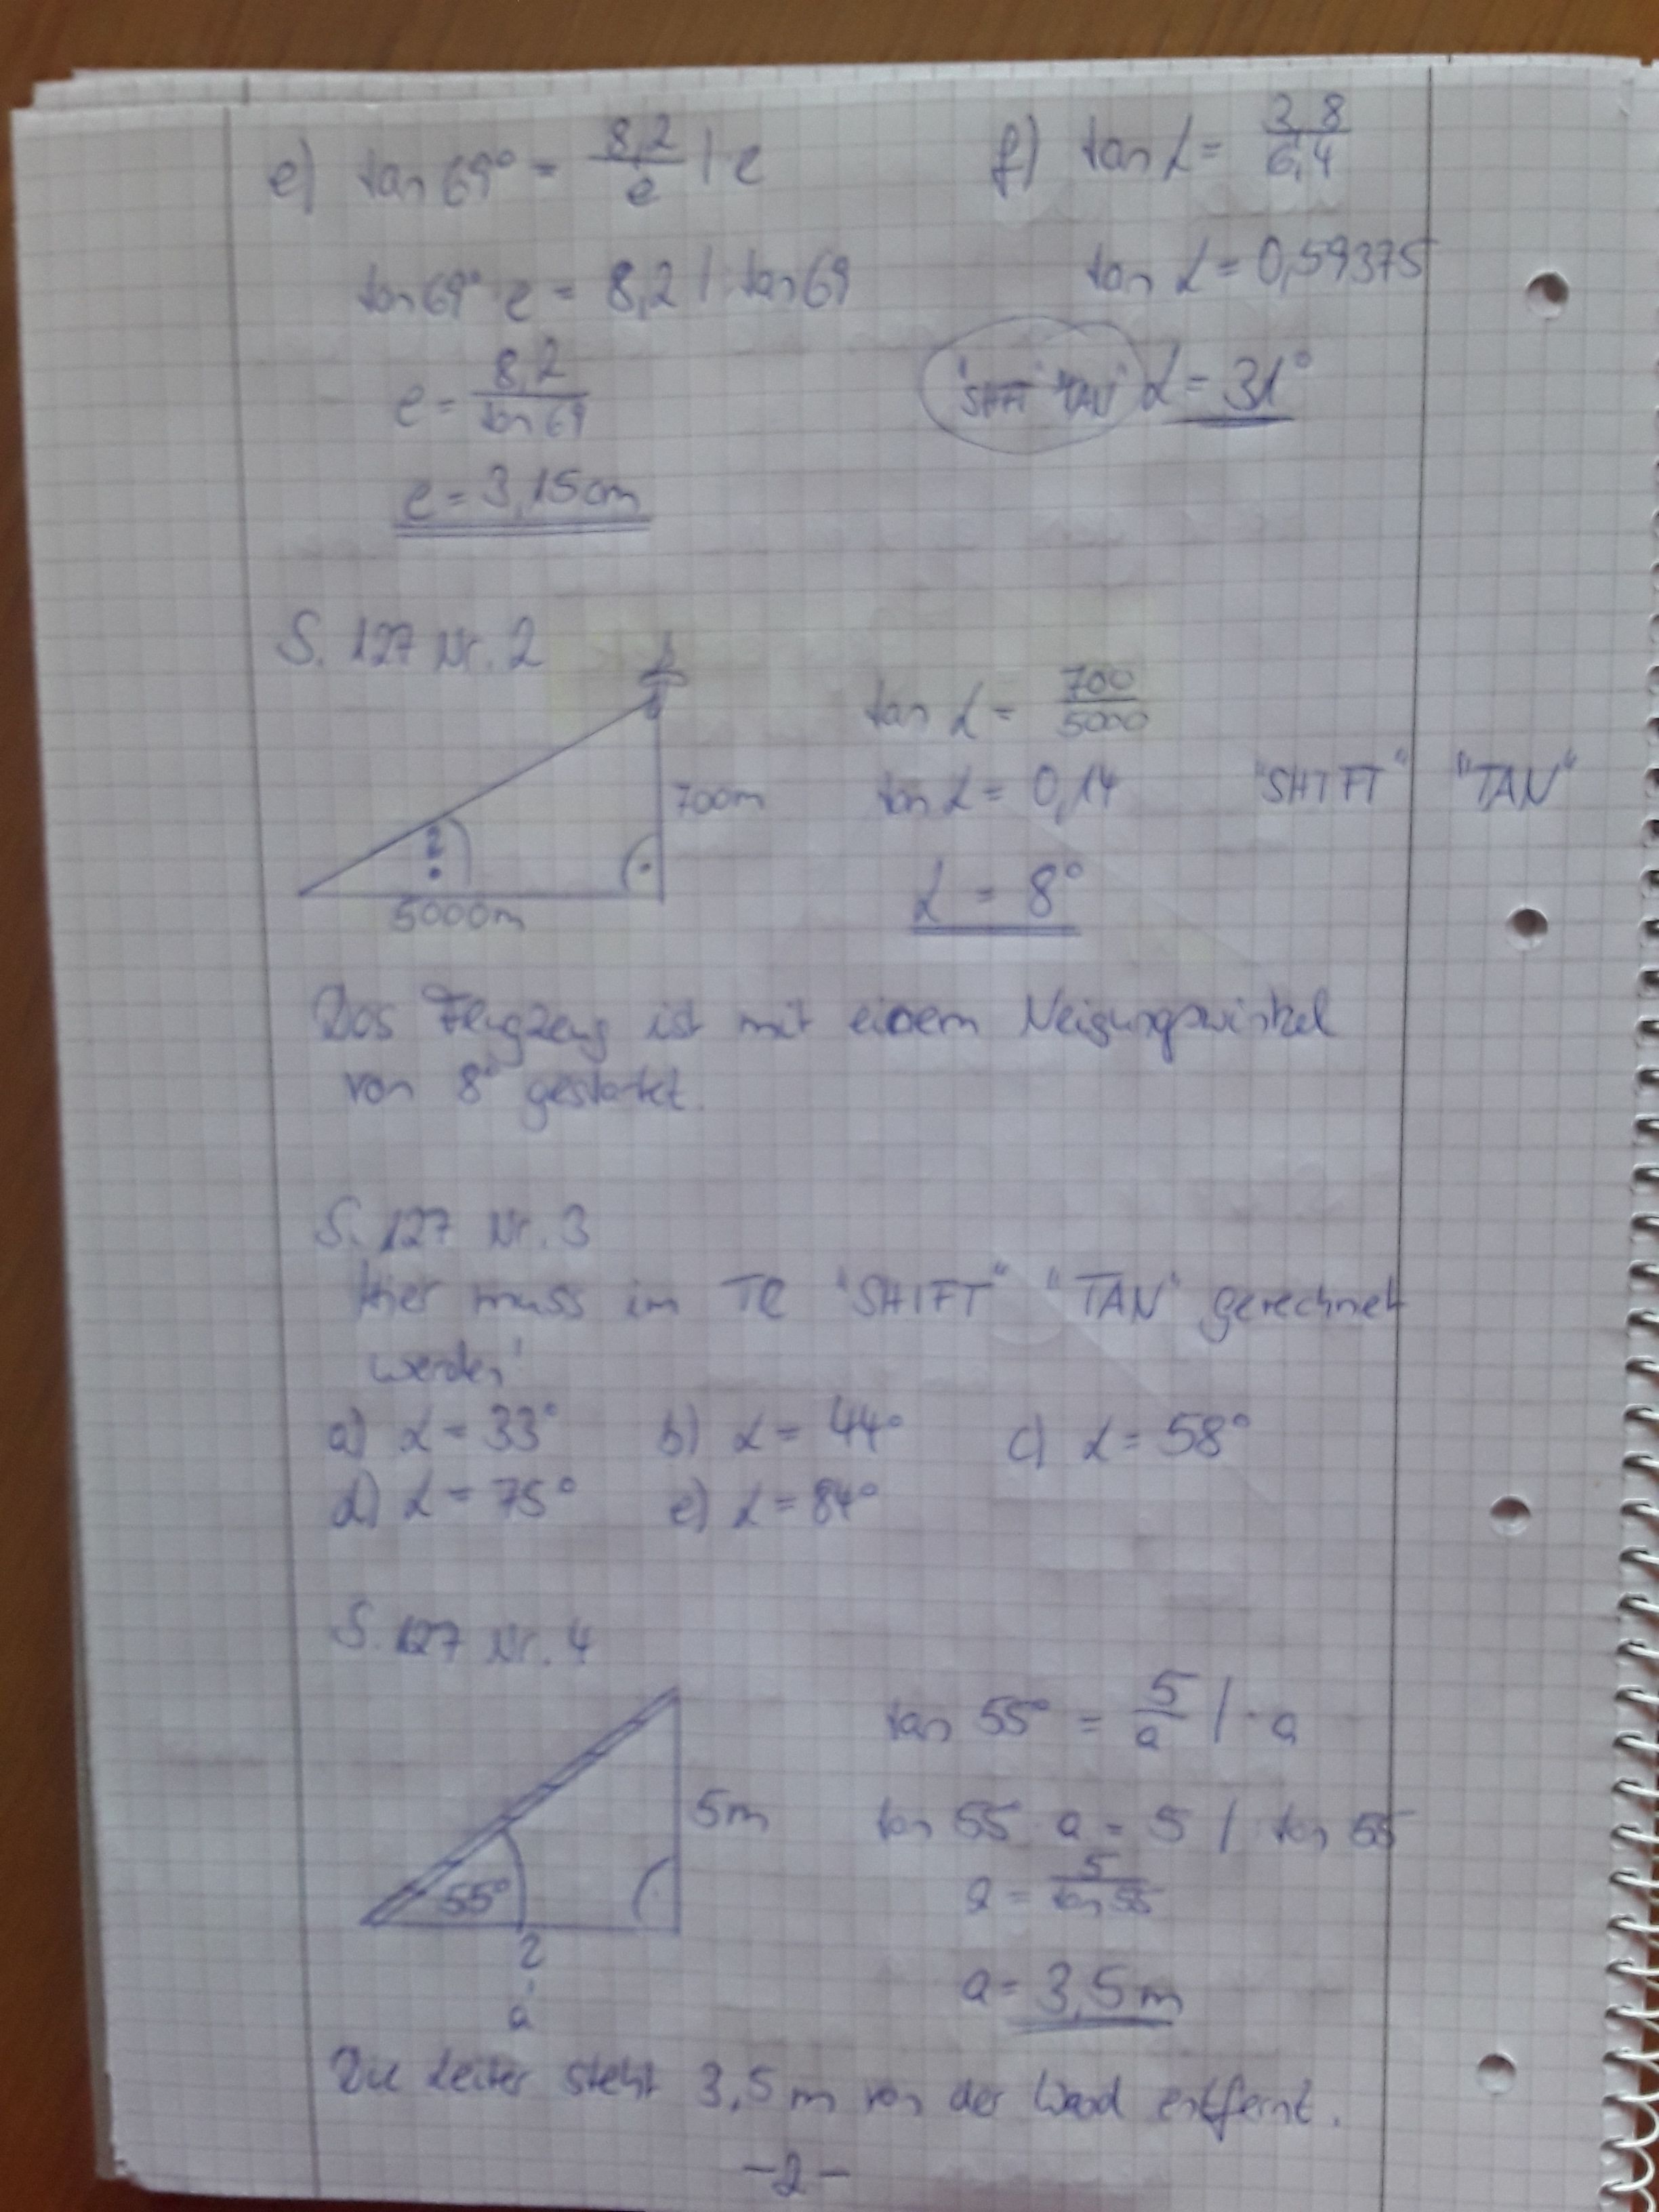 e) tan 69° = 8,2/e | · e
tan 69° · e = 8,2 | : tan 69
e = 8,2/tan 69
e = 3,15 cm
f) tan α = 3,8/6,4
tan α = 0,59375
"SHIFT" "TAN" α = 31°
S. 127 Nr. 2
700m
?
5000m
tan α = 700/5000
tan α = 0,14 "SHIFT" "TAN"
α = 8°
Das Flugzeug ist mit einem Neigungswinkel
von 8° gestartet.
S. 127 Nr. 3
Hier muss im TR "SHIFT" "TAN" gerechnet
werden!
a) α = 33° b) α = 44° c) α = 58°
d) α = 75° e) α = 84°
S. 127 Nr. 4
5m
55°
?
a
tan 55° = 5/a | · a
tan 55 · a = 5 | : tan 55
a = 5/tan 55
a = 3,5 m
Die Leiter steht 3,5 m von der Wand entfernt.
-2-